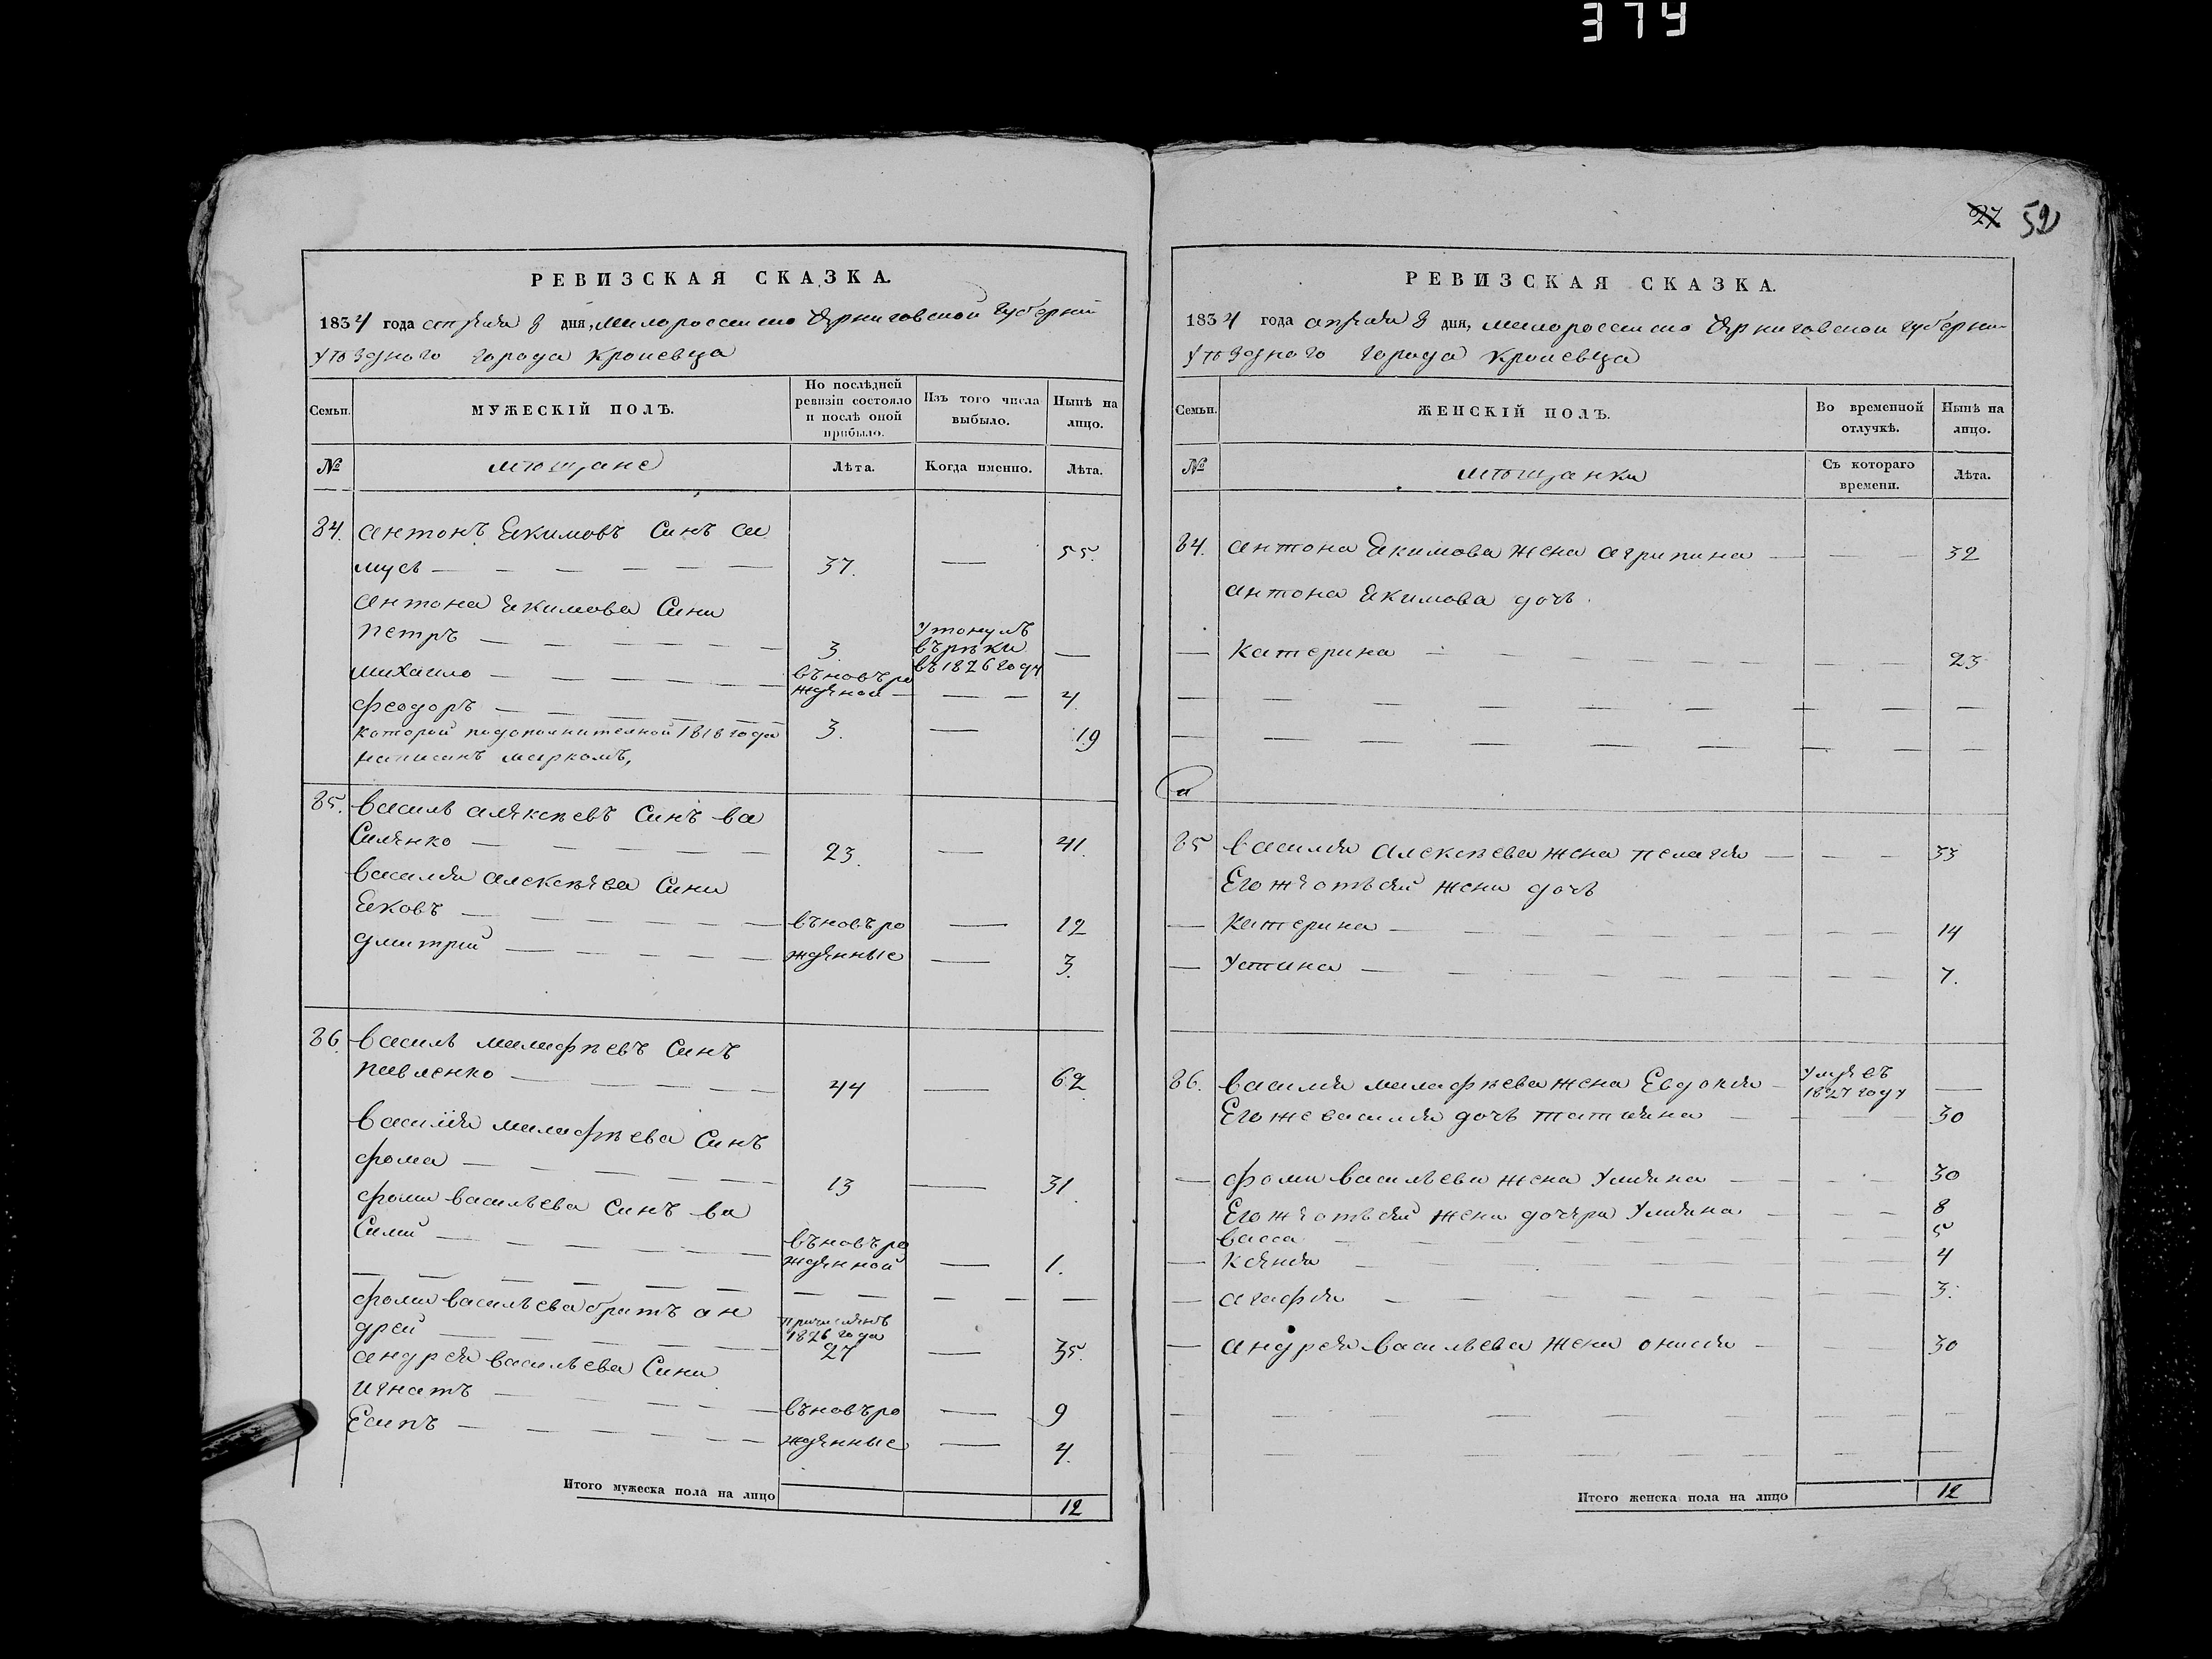 374
27 52
РЕВИЗСКАЯ СКАЗКА.
1834 года апреля 8 дня, малороссийско Черниговской губернии
уѣздного города Кролевца
Семьи.
МУЖЕСКІЙ ПОЛЪ.
По послѣдней ревизіи состояло и послѣ оной прибыло.
Изъ того числа выбыло.
Нынѣ на лицо.
№
мѣщане
Лѣта.
Когда именно.
Лѣта.
84. антонъ Екимовъ Синъ са
мусь 37. — 55.
антона Екимова Сини
петръ 3 утонулъ въ рѣки въ 1826 году —
михаило въновъ рожденой — 4.
феодоръ 3. — 19
которой подополнителной 1818 года
написанъ маркомъ,
85. василь алексѣевъ Синъ ва
силенко 23. — 41.
василия алексѣева Сини
Яковъ въновъ ро — 12
дмитрий жденные — 3.
86. василь малафѣевъ Синъ
павленко 44 — 62
василия малафѣева Синъ
фома 13 — 31.
фоми василъева Синъ ва
Силий въновъ рожденной — 1.
фоми василъева братъ ан
дрей причисленъ 1826 года 27 — 35.
андрея василъева Сини
игнатъ въновъ ро — 9
Есипъ жденные — 4.
Итого мужеска пола на лицо 12
РЕВИЗСКАЯ СКАЗКА.
1834 года апреля 8 дня, малороссийско Черниговской губернии
уѣздного города Кролевца
Семьи.
ЖЕНСКІЙ ПОЛЪ.
Во временной отлучкѣ.
Нынѣ на лицо.
№
мѣщанки
Съ котораго времени.
Лѣта.
84. антона Екимова жена агрипина — 32
антона Екимова дочь
— Катерина — 23
85 василия алексѣева жена пелагия — 33
Его же отъ сей жени дочь
— Катерина — 14
— Устина — 7.
86. василия малафѣева жена Евдокия умре въ 1827 году —
Его же василия дочь татияна — 30
— фоми василъева жена Улияна — 30
Его же отъ сей жени дочери Улияна — 8
васса — 5
— Ксения — 4
— агафия — 3.
— андрея василъева жена онисия — 30
Итого женска пола на лицо 12